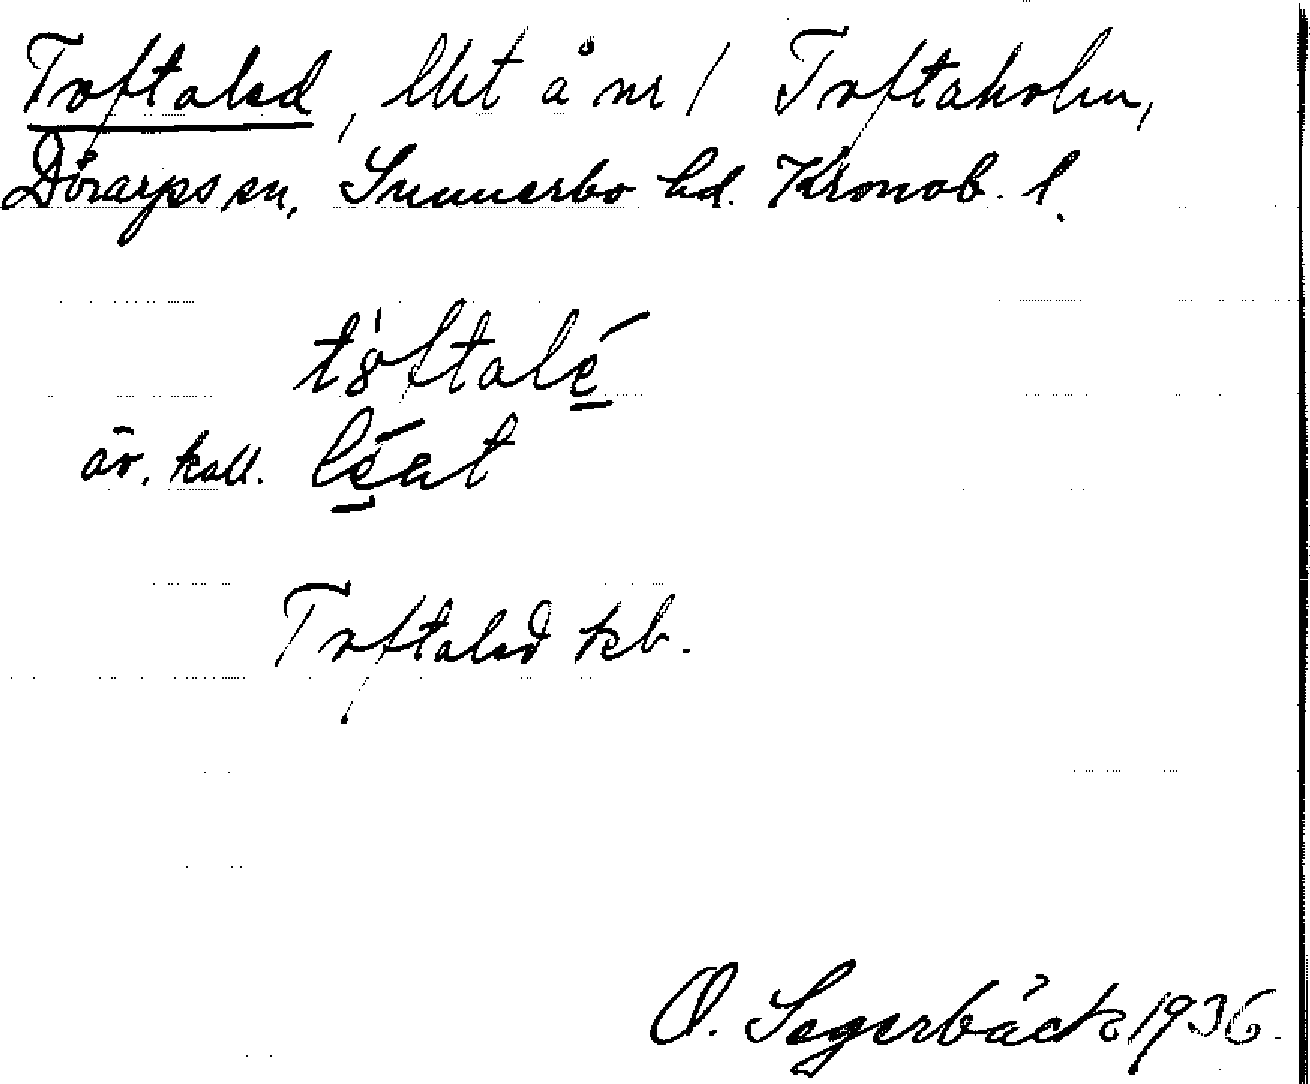 Toftaled, lht å nr 1 Toftaholm,
Dörarps sn, Sunnerbo hd. Kronob. l.
täv. kall.
Toftaled kb.
O. Segerbäck 1936.